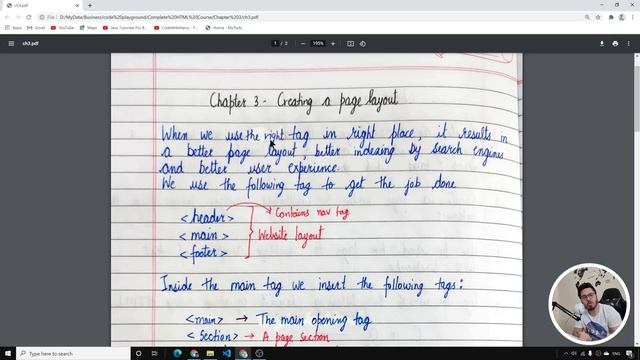 ch3.pdf
D:/MyData/Business/code%20playground/Complete%20HTML%20Course/Chapter%203/ch3.pdf
Apps
Gmail
YouTube
Maps
ch3.pdf
1 / 2
195%
Chapter 3 - Creating a page layout
When we use the right tag in right place, it results in
a better page layout, better indexing by search engines
and better user experience.
We use the following tag to get the job done
<header> Contains nav tag
<main> Website layout
<footer>
Inside the main tag we insert the following tags:
<main> → The main opening tag
<section> → A page section
Type here to search
ENG